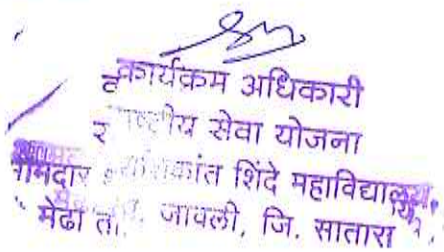 कार्यक्रम अधिकारी
राष्ट्रीय सेवा योजना
शशिकांत शिंदे महाविद्यालय,
मेढा ता. जावली, जि. सातारा